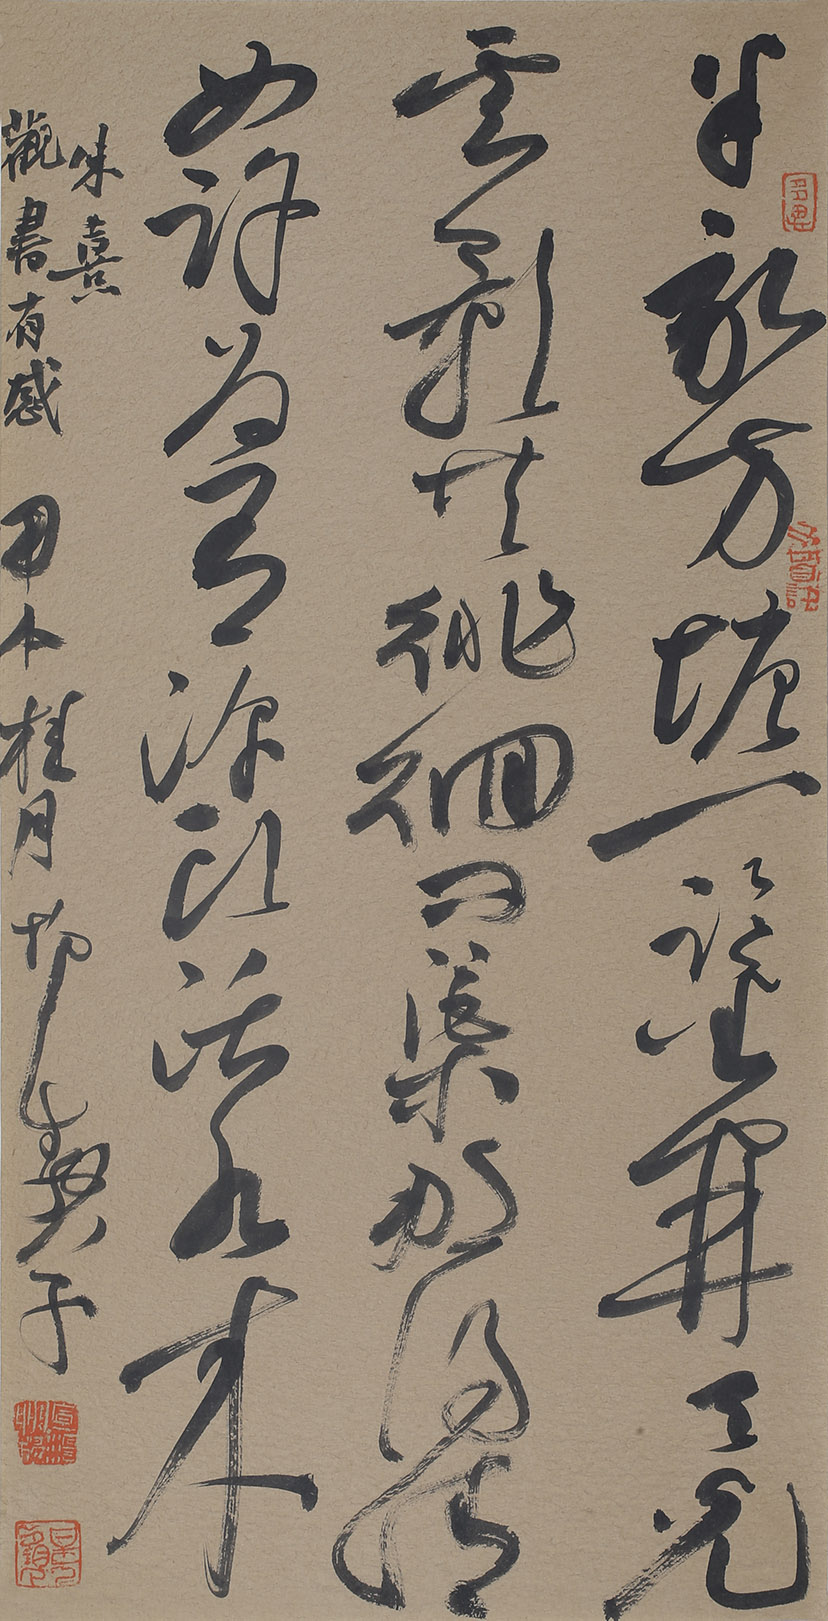 半畝方塘一鑒開天光
云影共徘徊問渠那得清
如許為有源頭活水來
朱熹
觀書有感 桂月